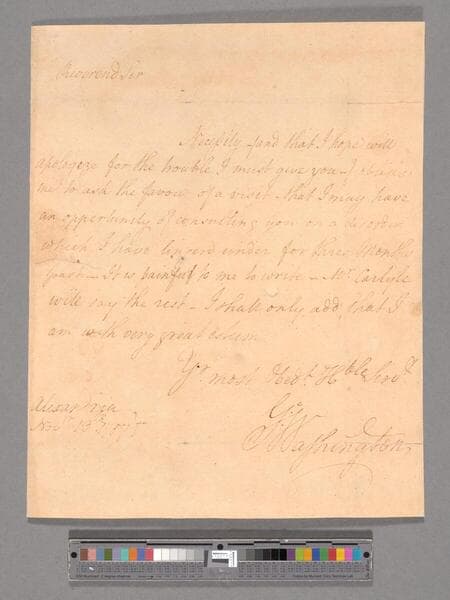 Reverend Sir
Necessity (and that I hope will
apologize for the trouble I must give you) obliges
me to ask the favour of a visit, that I may have
an opportunity of consulting you on a disorder
which I have lingerd under for three Months
past – It is painful to me to write – Mr Carlyle
will say the rest – I shall only add, that I
am with very great esteem
Yr most Obedt Hble Servt
Go Washington
Alexandria
Novr 13th